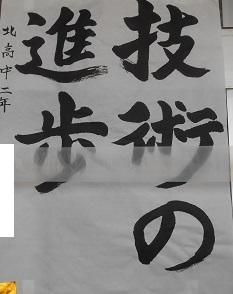 技術の
進歩
北高中二年